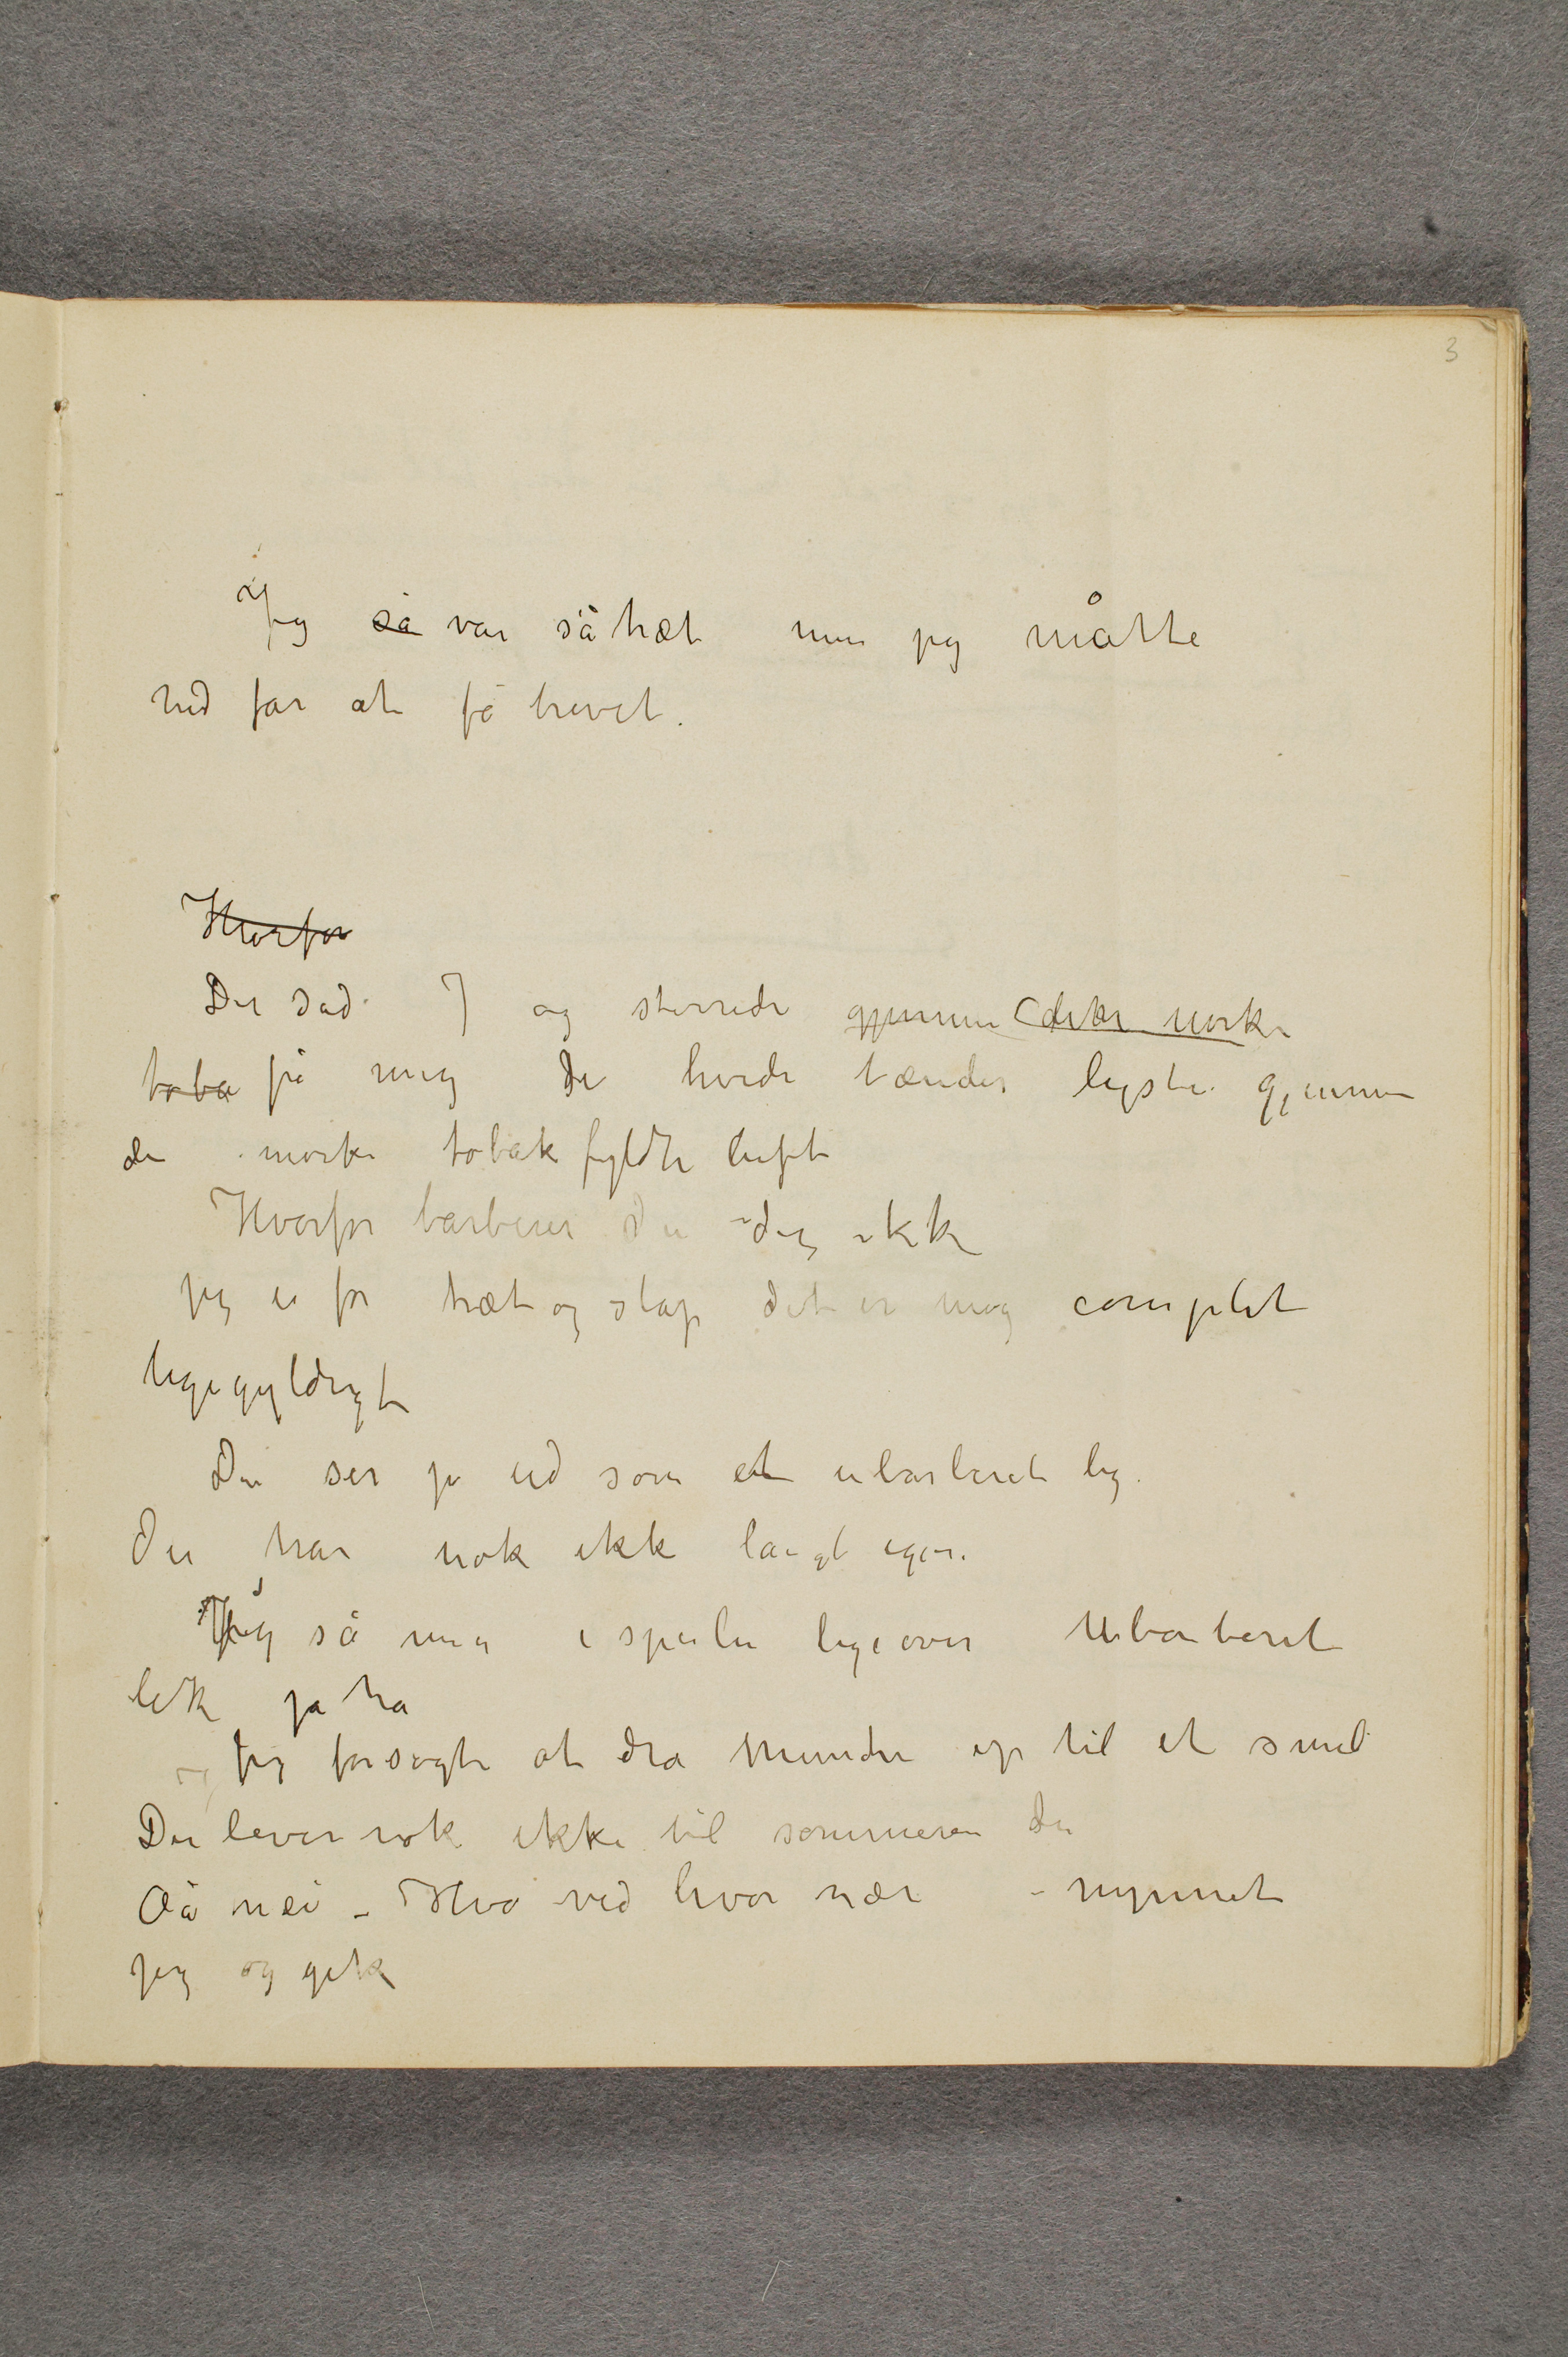 3
Jeg så var så træt men jeg måtte
ned for at få brevet.
Hvorfor
Der sad J og stirrede gjennem dette mørke
toba på mig de hvide tænder lyste gjennem
de mørke tobakfyldte luft
Hvorfor barberer du dig ikke
jeg er for træt og slap det er mig complet
ligegyldigt
Du ser jo ud som et ubarberet lig.
Du har nok ikke langt igjen.
Jeg så mig i speilet ligeover Ubarberet
lik ja ha
og jeg forsøgte at dra munden op til et smil
Du lever nok ikke til sommeren du
Åå nei – Hvo ved hvor nær – nynnet
jeg og gik